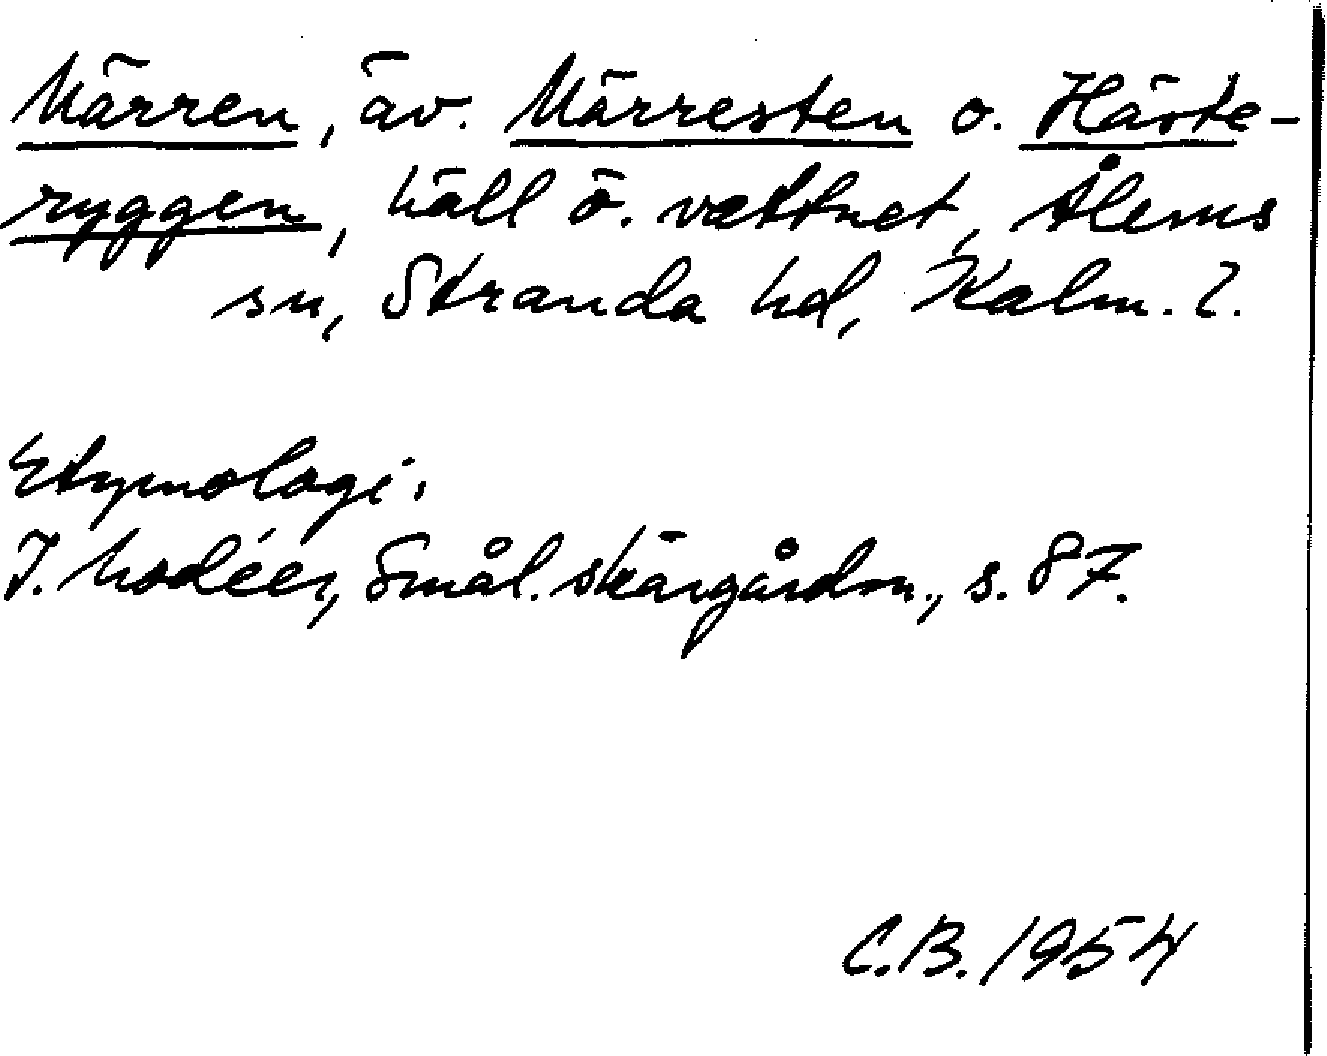 Märren, äv. Märresten o. Häste-
ryggen, häll ö. vattnet, Ålems
sn, Stranda hd, Kalm. l.
Etymologi:
I. Modéer, Smål. skärgårdsn., s. 87.
C.B. 1954